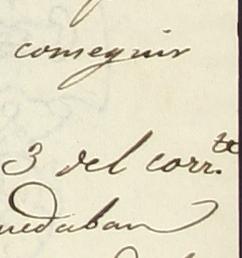 conseguir
3 del corr.te
uedaban